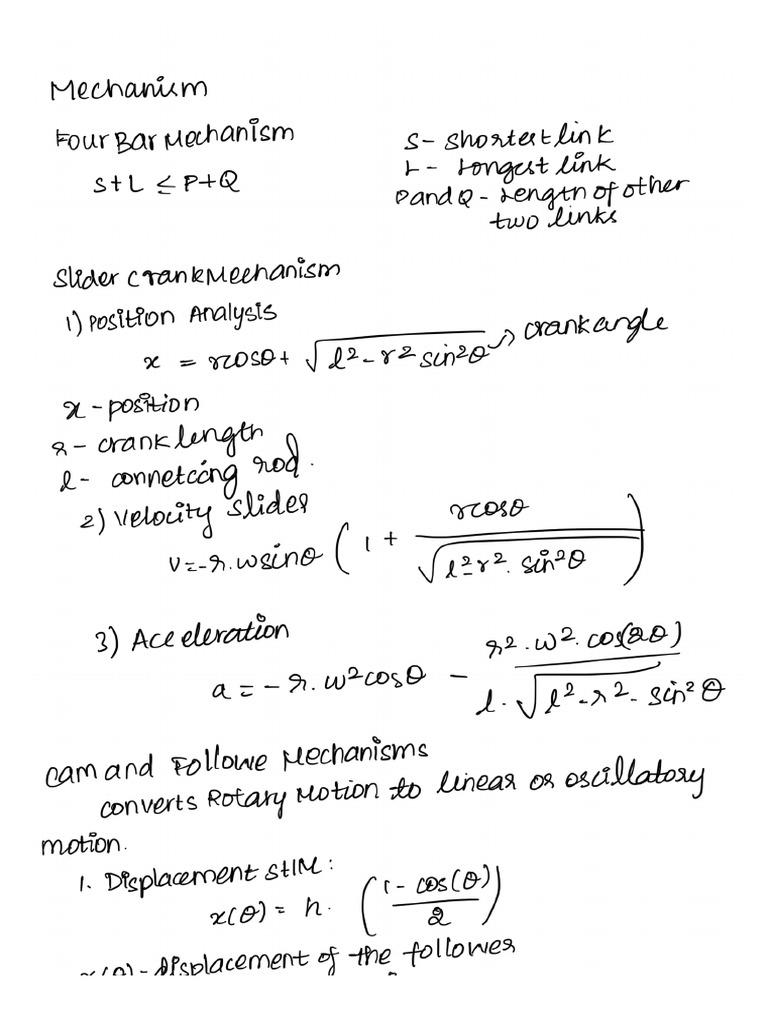 Mechanism
Four Bar Mechanism
S+L ≤ P+Q
S- Shortest link
L - Longest link
P and Q - Length of other
two links
Slider Crank Mechanism
1) Position Analysis
x = rcosθ + √(l² - r² sin²θ) → crank angle
x - position
r - crank length
l - conneteing rod.
2) Velocity Slider
v = -r.wsinθ (1 + rcosθ / √(l² - r². sin²θ))
3) Aceeleration
a = -r.w²cosθ - r².w².cos(2θ) / l.√(l² - r² - sin²θ)
cam and Followe Mechanisms
converts Rotary Motion to linear or oscillatory
motion.
1. Displacement SHM:
x(θ) = h. (1 - cos(θ) / 2)
x(θ) - Displacement of the follower